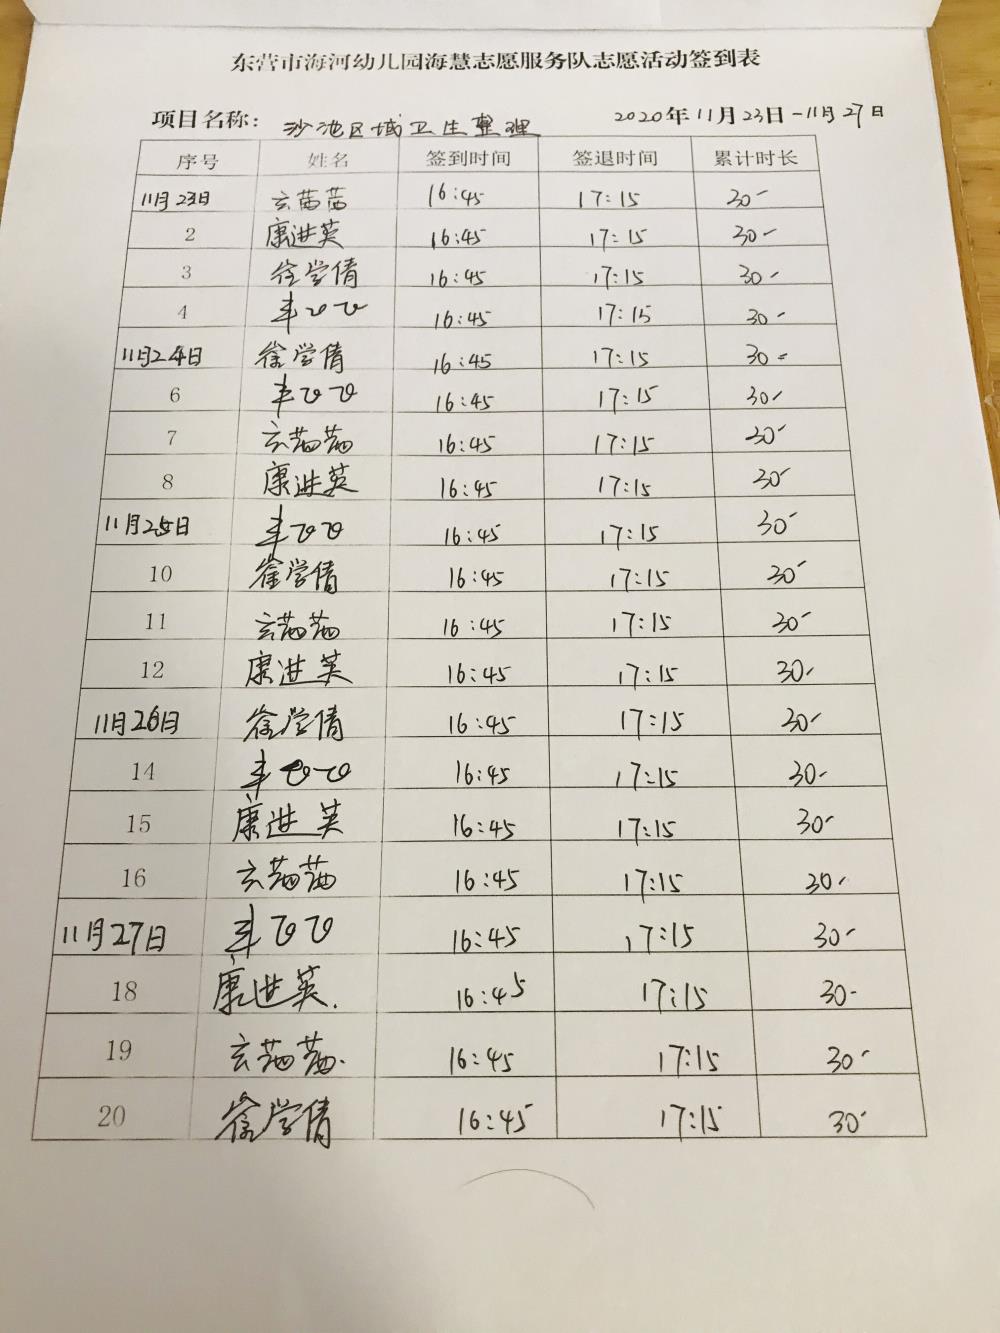 东营市海河幼儿园海慧志愿服务队志愿活动签到表
项目名称： 沙池区域卫生整理 2020年11月23日-11月27日
序号 姓名 签到时间 签退时间 累计时长
11月23日 玄茜茜 16:45 17:15 30'
2 康进英 16:45 17:15 30'
3 徐学倩 16:45 17:15 30'
4 16:45 17:15 30'
11月24日 徐学倩 16:45 17:15 30'
6 16:45 17:15 30'
7 玄茜茜 16:45 17:15 30'
8 康进英 16:45 17:15 30'
11月25日 16:45 17:15 30'
10 徐学倩 16:45 17:15 30'
11 玄茜茜 16:45 17:15 30'
12 康进英 16:45 17:15 30'
11月26日 徐学倩 16:45 17:15 30'
14 16:45 17:15 30'
15 康进英 16:45 17:15 30'
16 玄茜茜 16:45 17:15 30'
11月27日 16:45 17:15 30'
18 康进英. 16:45 17:15 30'
19 玄茜茜. 16:45 17:15 30'
20 徐学倩 16:45 17:15 30'